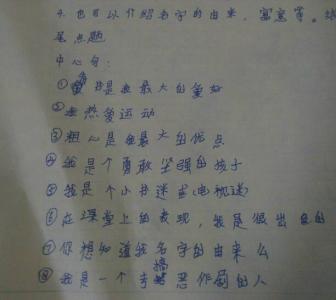 4. 也可以介绍名字的由来，寓意等。结
尾点题
中心句：
①看书是我最大的爱好
②我热爱运动
③粗心是我最大的优点
④我是个勇敢坚强的孩子
⑤我是个小书迷（电视迷）
⑥在课堂上的表现，我是很出色的
⑦你想知道我名字的由来么
⑧我是一个搞恶作剧的人